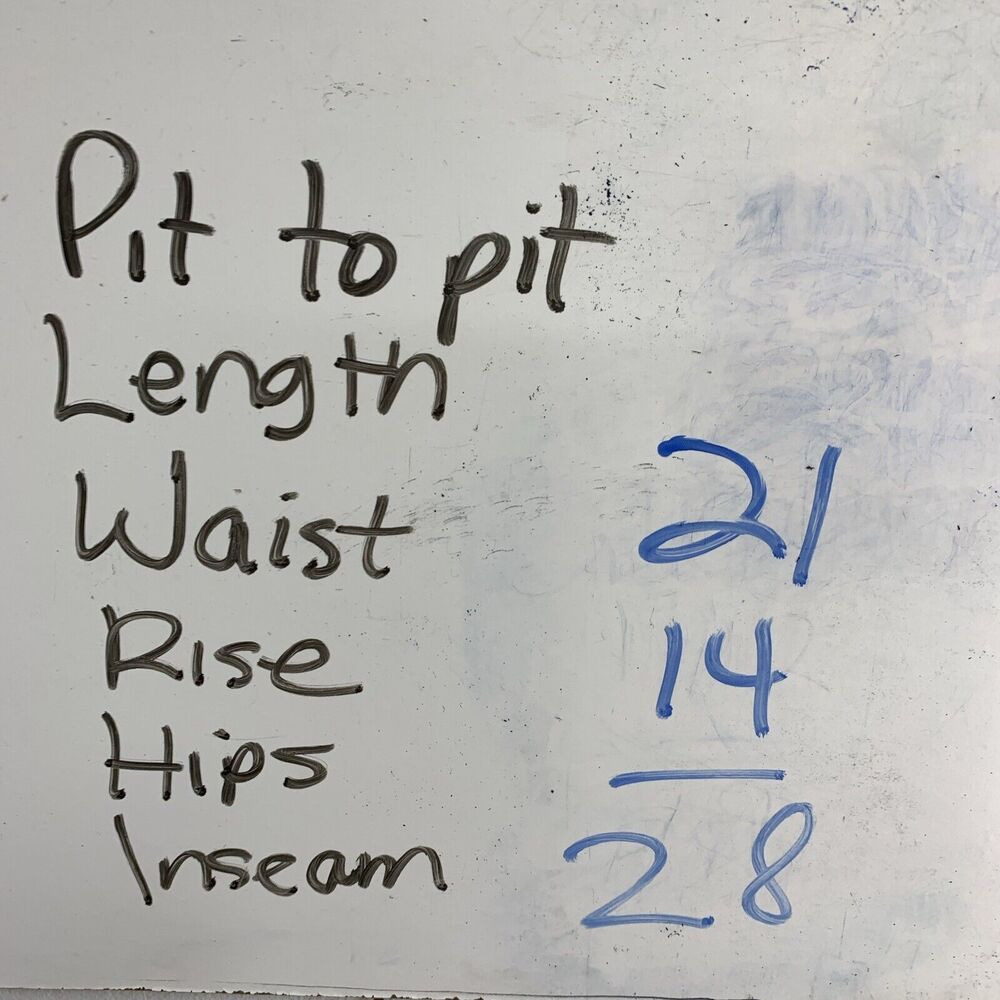 Pit to pit
Length
Waist 21
Rise 14
Hips —
Inseam 28